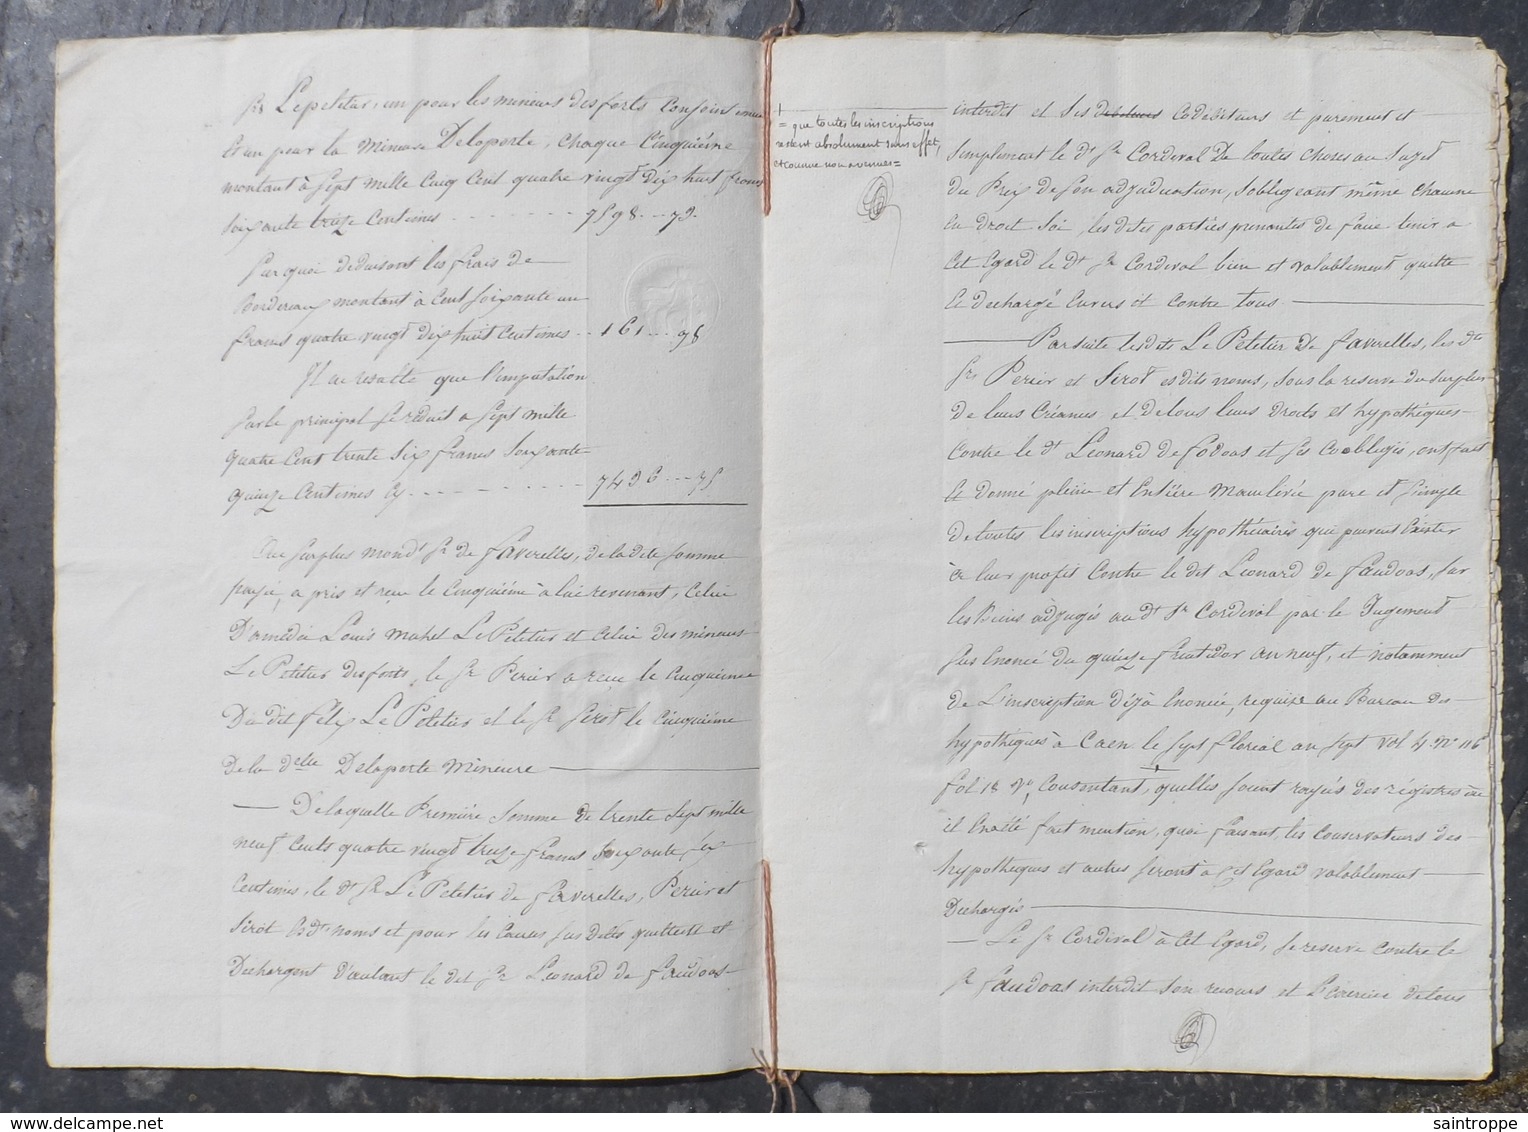 Srs Lepeletier, un pour les mineurs desforts conjointement
Et un pour la Mineure Delaporte, chaque Cinquième
montant à Sept mille Cinq Cent quatre vingt dix huit francs
Soixante treize Centimes - - - - - - - 7598 -- 73.
Sur quoi deduisant les frais de
Bordereaux montant à Cent soixante un
francs quatre vingt dix huit Centimes -- 161 --- 98
Il en resulte que l'imputation
sur le principal se réduit a Sept mille
quatre Cent trente Six francs Soixante
quinze Centimes Cy - - - - - - - - 7436 --- 75
Au surplus mondt Sr de Faverelles, de la dite somme
payée, a pris et reçu le Cinquième à lui revenant, Celui
D'amédée Louis Mahet Le Peletier et Celui des mineurs
Le Peletier desforts, le Sr Perier a reçu le Cinquième
Du dit félix Le Peletier et le Sr Serot le Cinquième
De la delle Delaporte Mineure
Delaquelle Première Somme de trente Sept mille
neuf Cents quatre vingt treize francs Soixante Six
Centimes, le dt Sr Le Peletier de Faverelles, Perier et
Sirot es dts noms et pour les Causes sus dites quittent et
Dechargent D'autant le dit Sr Léonard de Faudoas
+
= que toutes les inscriptions
restent absolument sans effet,
et comme non avenues =
interdit et Ses debiteurs Codébiteurs et purement et
Simplement le dt Sr Cordival De toutes choses au Sujet
du Prix de Son adjudication, S'obligeant même chacune
en droit Soi, les dites parties prenantes de faire tenir a
Cet Egard le dt Sr Cordival bien et valablement quitte
et déchargé Envers et contre tous
Par suite lesdits Le Peletier De Faverelles, les dts
Srs Perier et Sirot es dits noms, sous la reserve du surplus
de leurs Créances et de tous leurs droits et hypothèques
contre le dt Léonard de fodoas et ses Coobligés, ont fait
et donné pleine et Entière Mainlevée pure et Simple
de toutes les inscriptions hypothécaires qui peuvent Exister
à leur profit Contre le dit Léonard de Faudoas, sur
les Biens adjugés au dt Sr Cordival par le Jugement
sus Enoncé du quinze fructidor an neuf, et notamment
de L'inscription déjà Enoncée, requise au Bureau des
hypothèques à Caen le sept floréal an sept Vol 4 No 116
fol 18 Vo, Consentant, qu'elles soient rayées des régistres où
il En a été fait mention, quoi faisant, les Conservateurs des
hypothèques et autres seront à Cet Egard valablement
Déchargés
Le Sr Cordival à Cet Egard, se reserve contre le
Sr Faudoas interdit Son recours et l'Exercice de tous
saintroppe